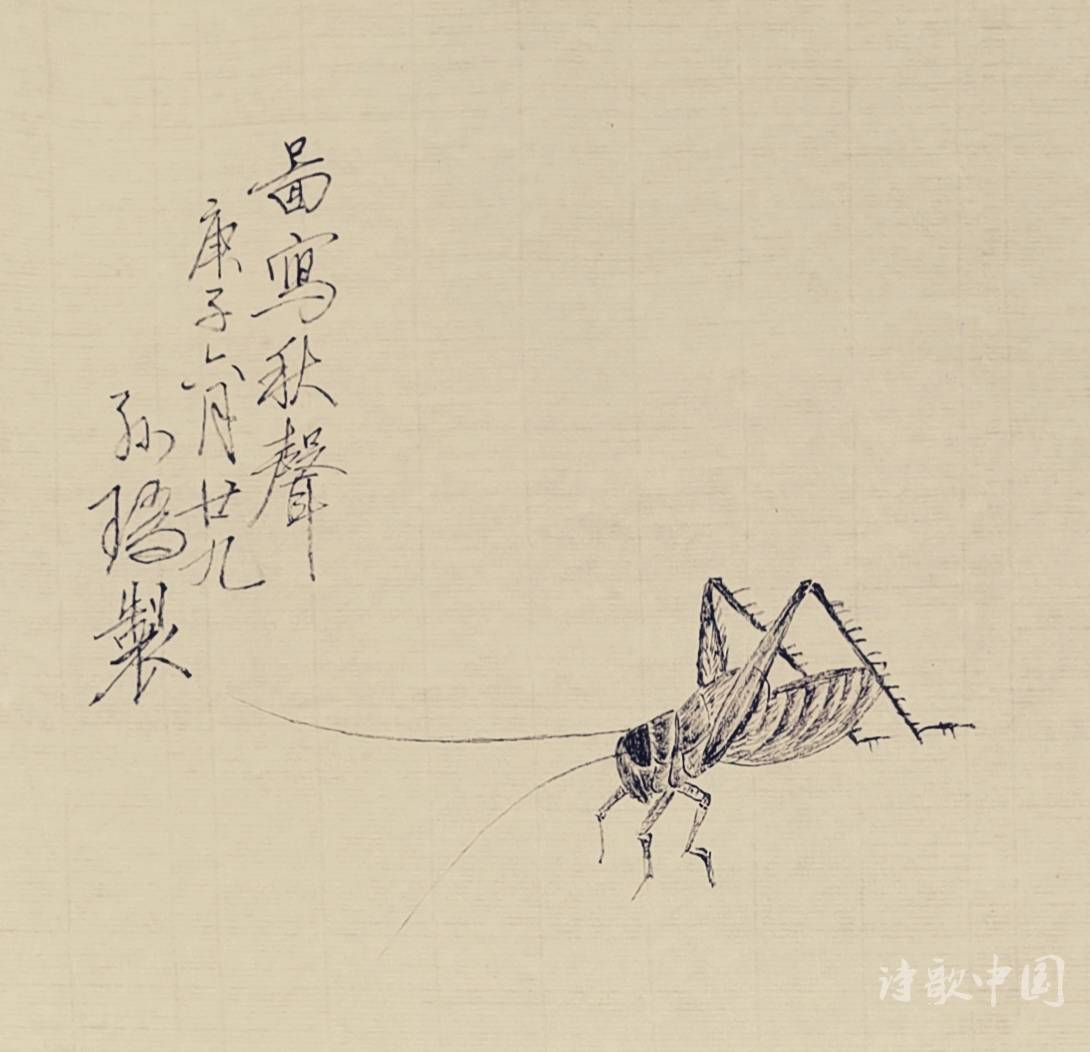 啚寫秋聲
庚子六月廿九
孫璚製
诗歌中国